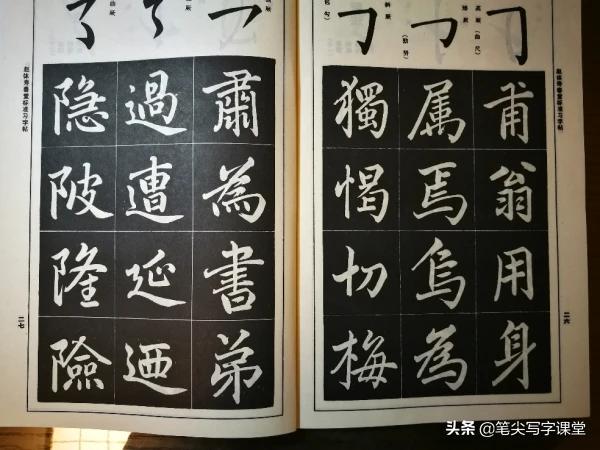 甫翁用身
属焉烏為
獨愒切梅
二六
肅為書弟
過遭延迺
隐陂隆險
二七
头条 @笔尖写字课堂